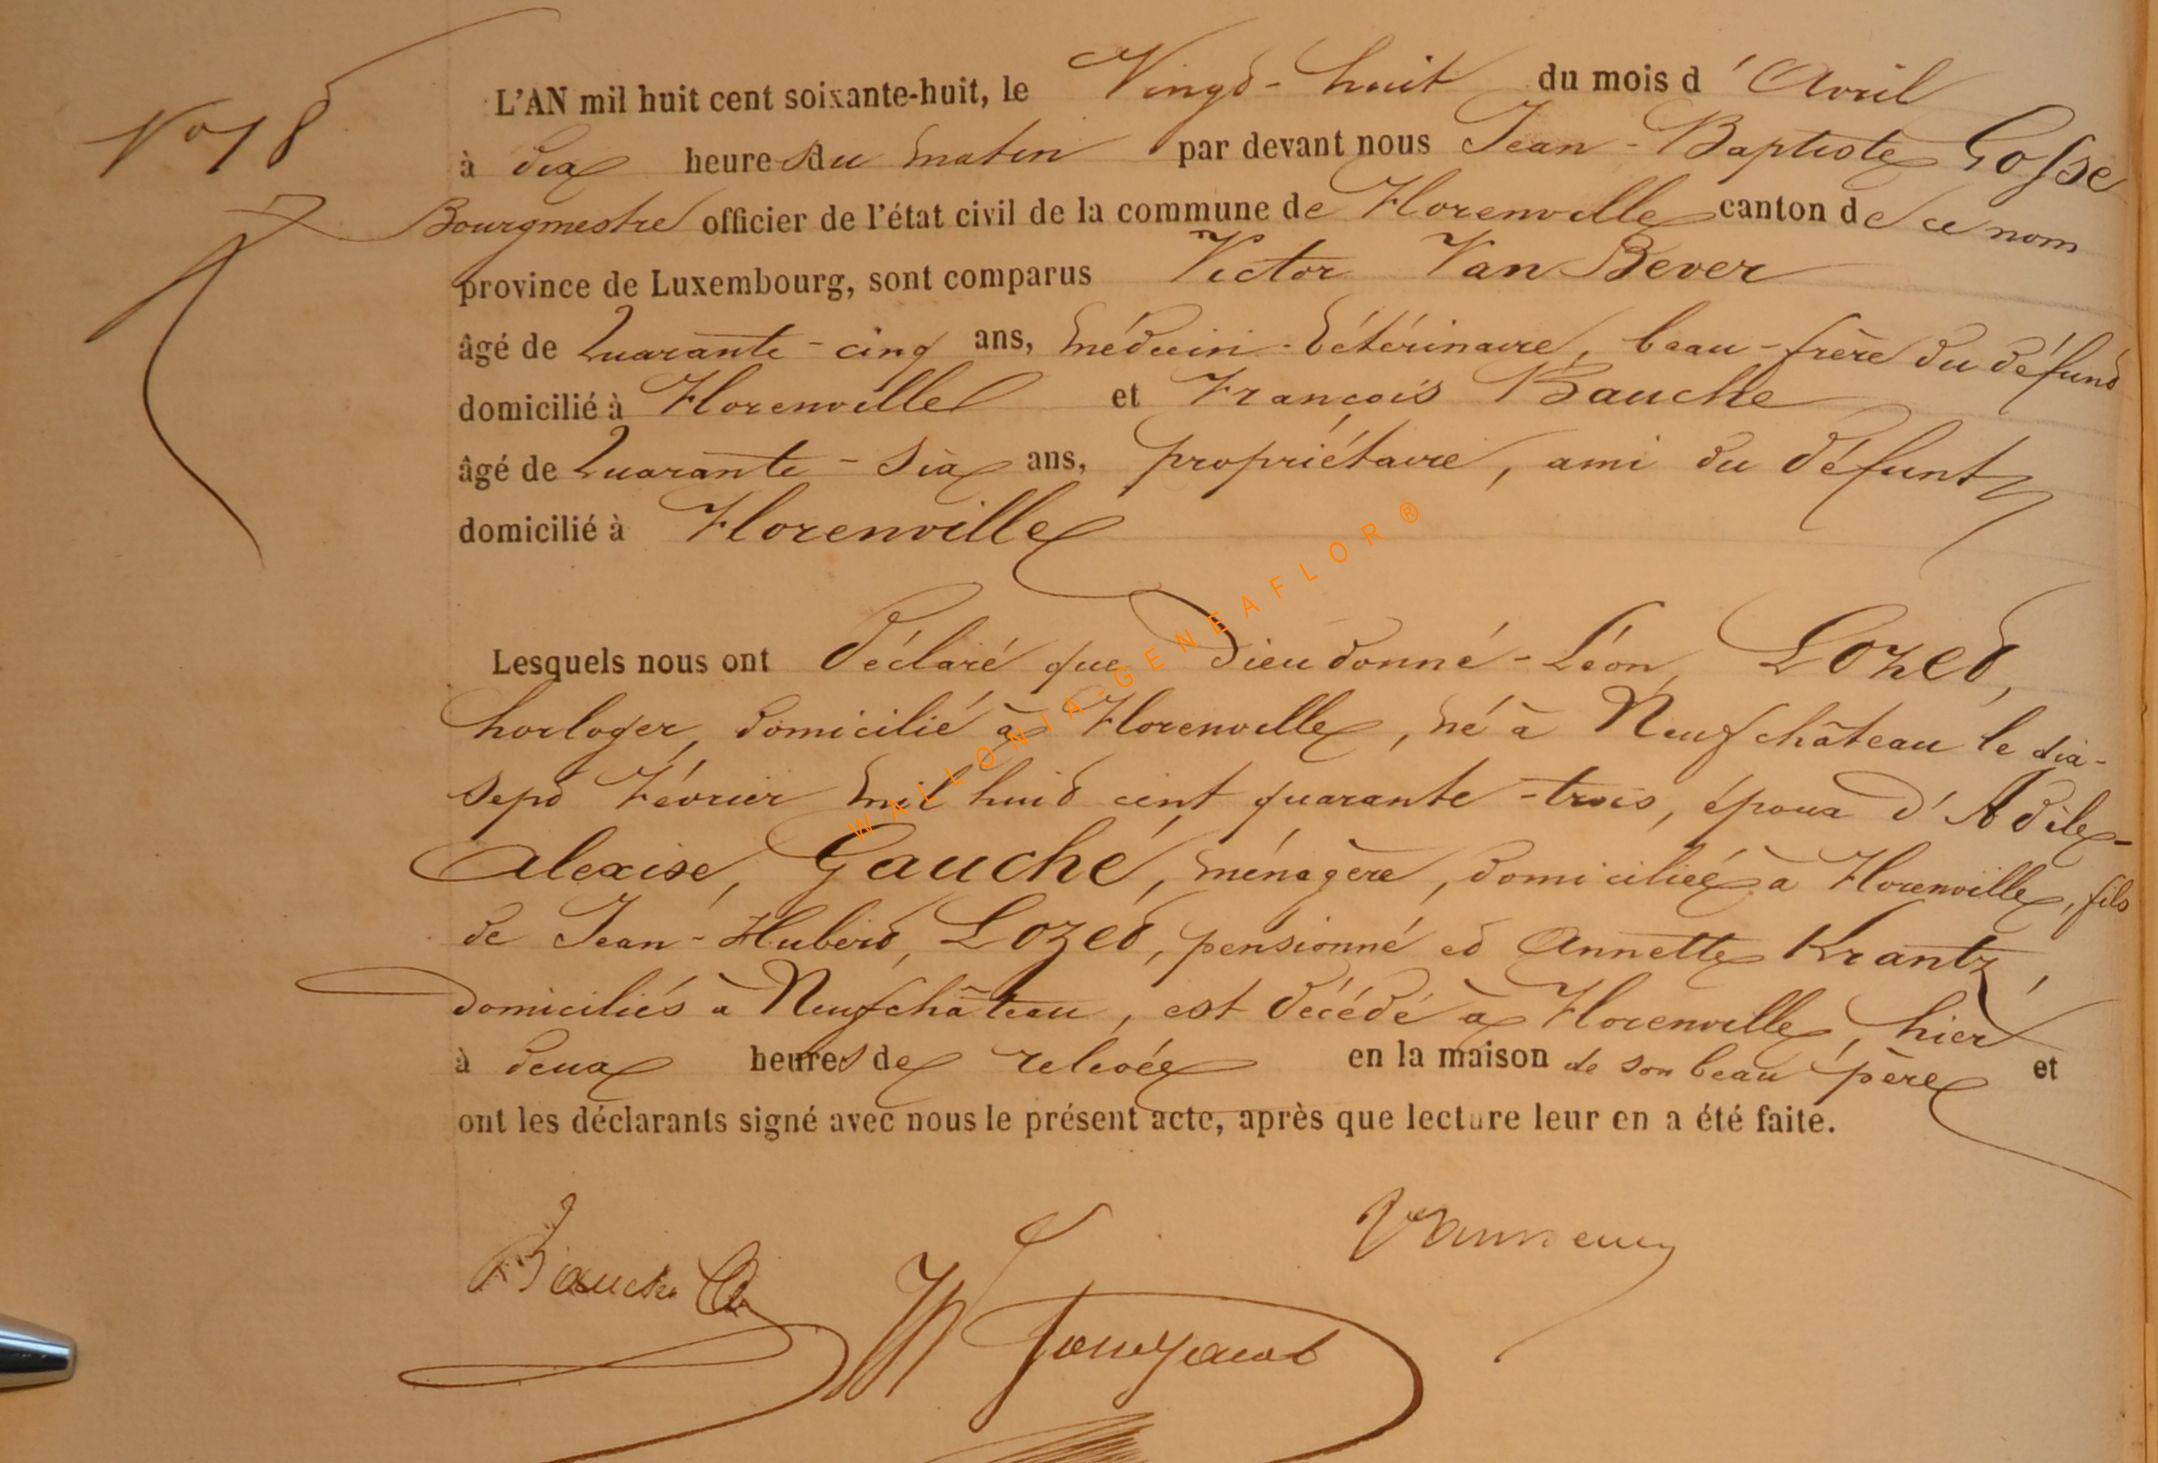 No 18
L'AN mil huit cent soixante-huit, le Vingt-huit du mois d'Avril
à dix heures du matin par devant nous Jean-Baptiste Gosse
Bourgmestre officier de l'état civil de la commune de Florenville canton de ce nom
province de Luxembourg, sont comparus Victor Van Bever
âgé de Quarante-cinq ans, médecin-vétérinaire, beau-frère du défunt
domicilié à Florenville et François Bauche
âgé de Quarante-six ans, propriétaire, ami du défunt
domicilié à Florenville
Lesquels nous ont déclaré que Dieudonné-Léon, Lozet,
horloger, domicilié à Florenville, né à Neufchâteau le dix-
sept Février mil huit cent quarante-trois, époux d'Adèle-
Alexise, Gauché, ménagère, domiciliée à Florenville, fils
de Jean-Hubert, Lozet, pensionné et Annette Krantz,
domiciliés à Neufchâteau, est décédé à Florenville, hier
à deux heures de relevée en la maison de son beau père et
ont les déclarants signé avec nous le présent acte, après que lecture leur en a été faite.
Bauche
WALLONIA-GENEAFLOR ®